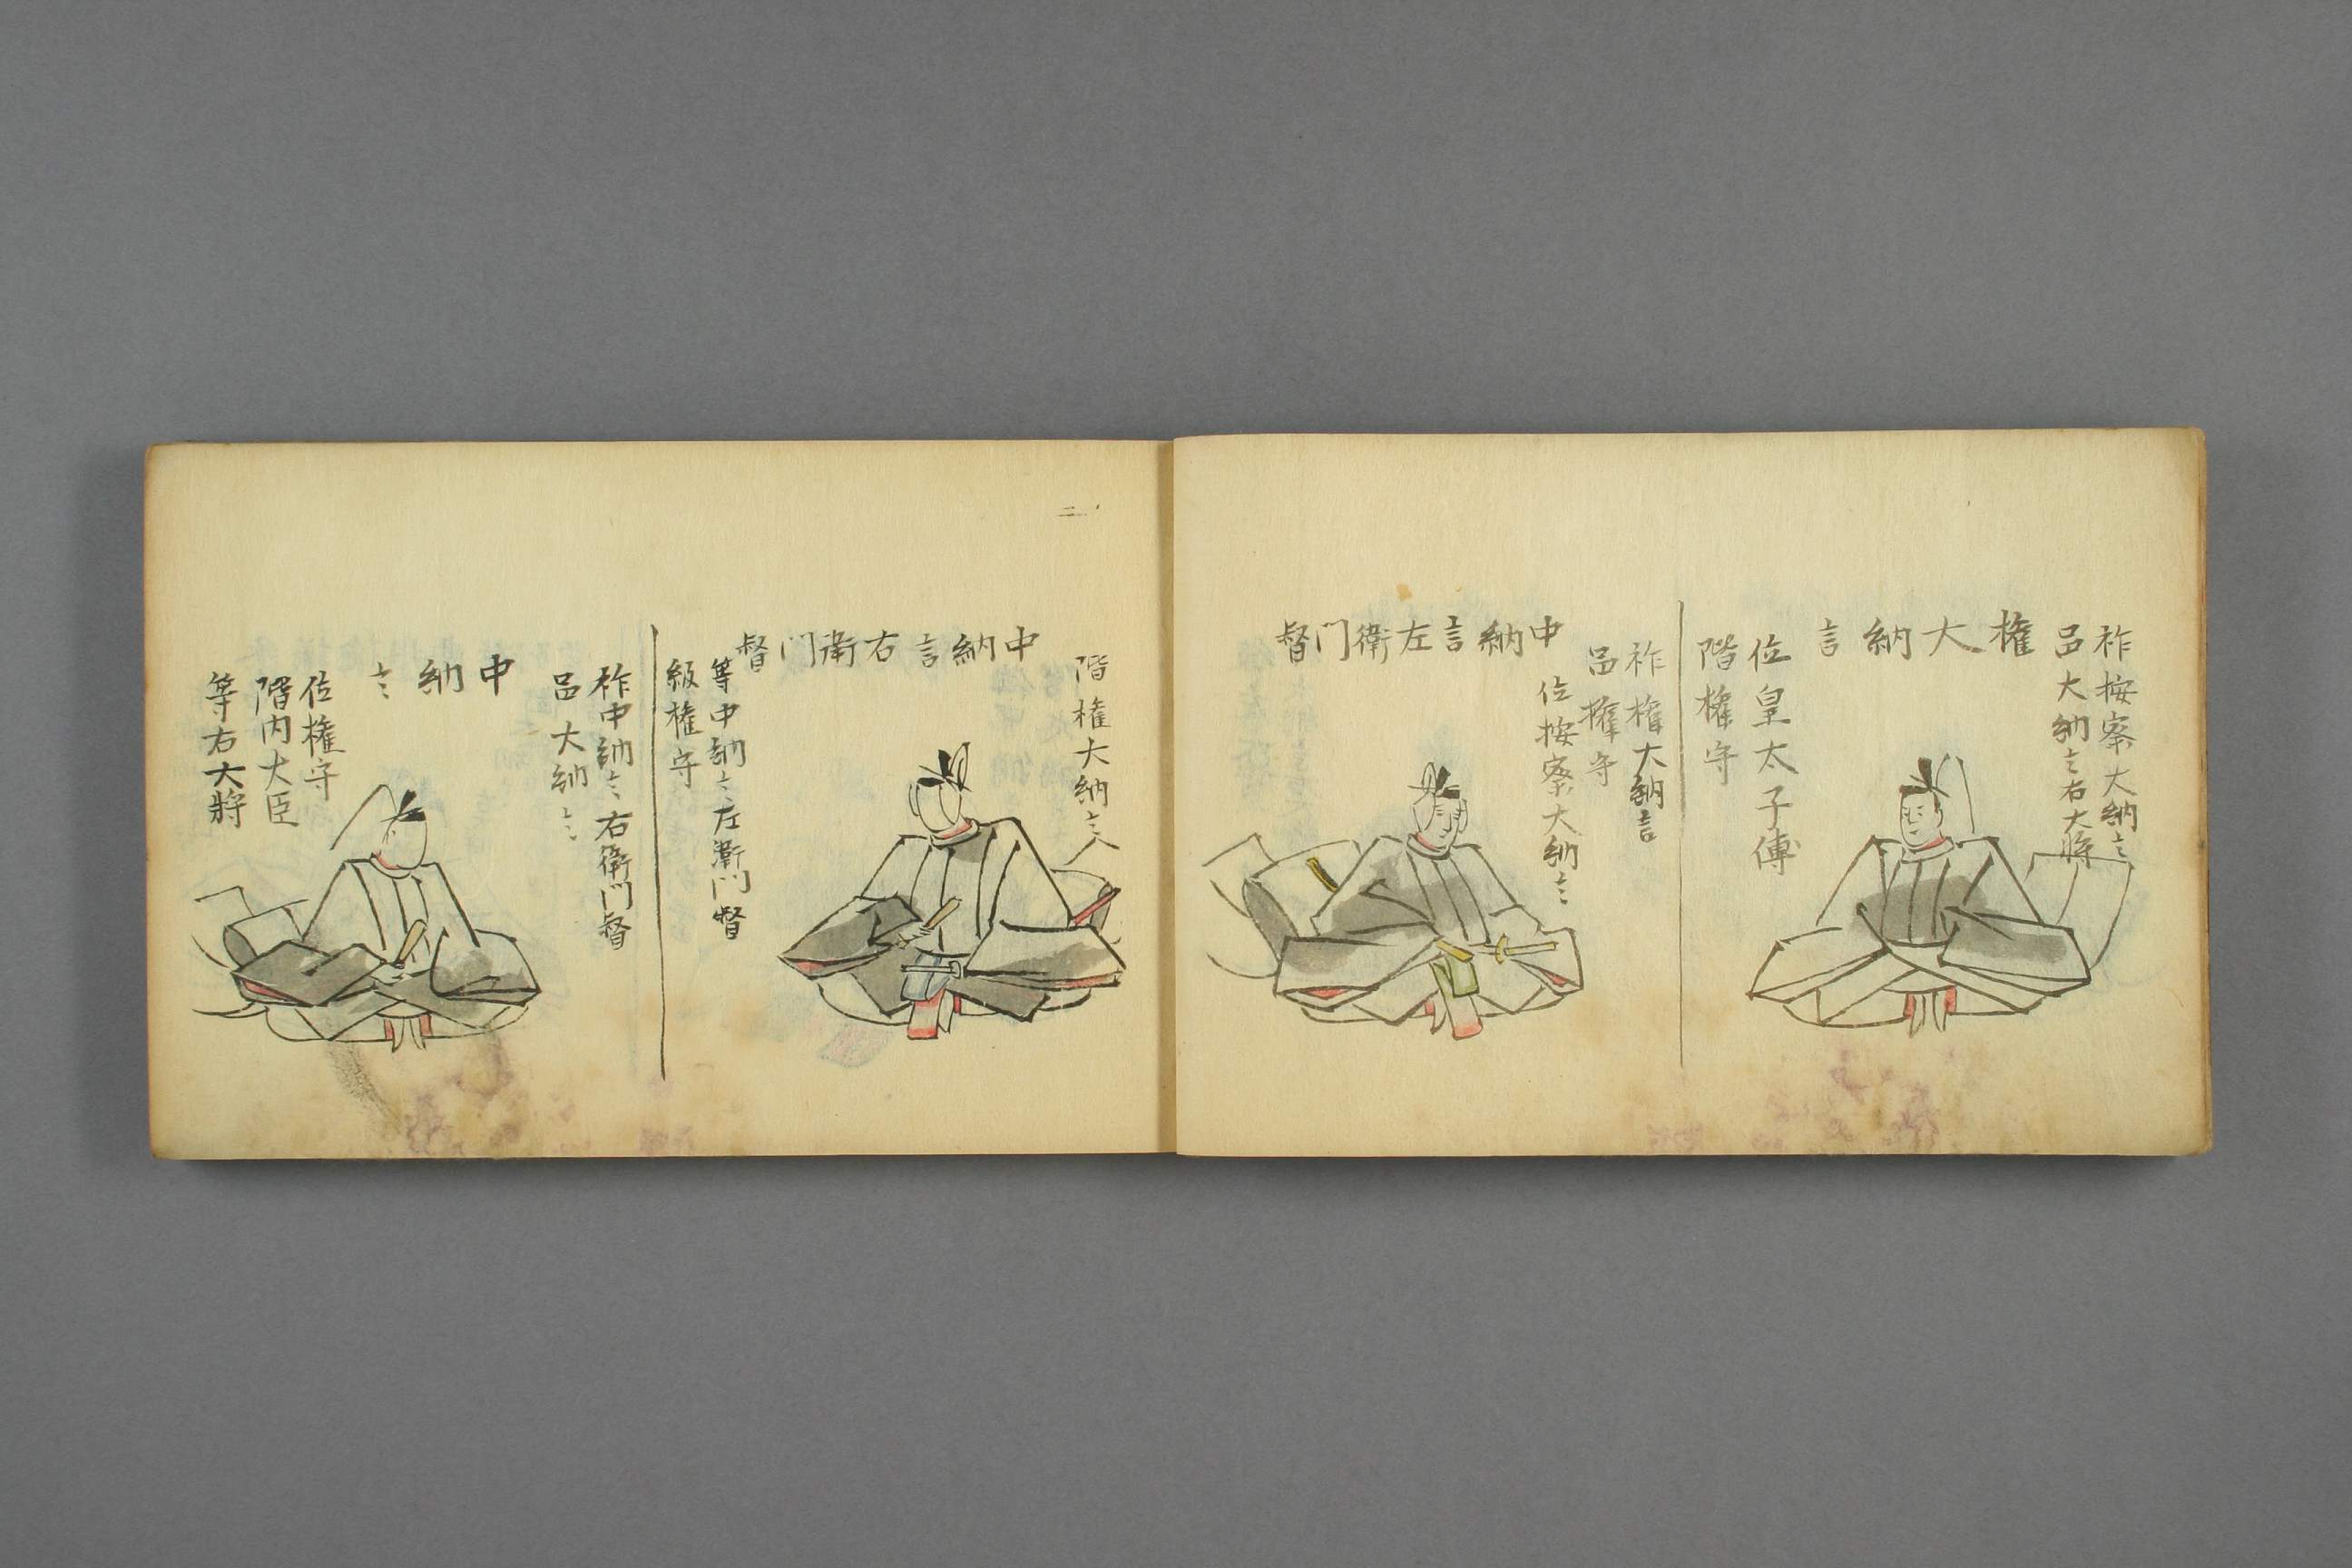 祚按察大納言
呂大納言右大将
権大納言
位皇太子傅
階権守
祚権大納言
呂権守
位按察大納言
中納言左衛門督
階権大納言
中納言右衛門督
等中納言左衛門督
級権守
祚中納言右衛門督
呂大納言
中納言
位権守
階内大臣
等右大将